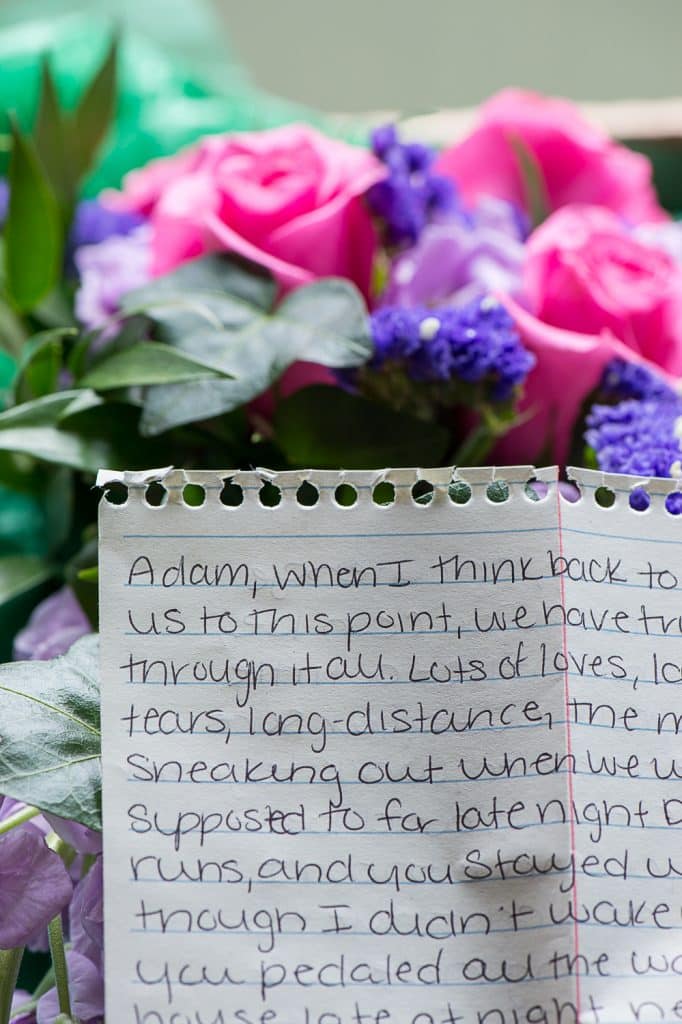 Adam, when I think back to
us to this point, we have
through it all. Lots of loves,
tears, long-distance, the
Sneaking out when we
supposed to for late night
runs, and you stayed
though I didn't wake
you pedaled all the
house late at night